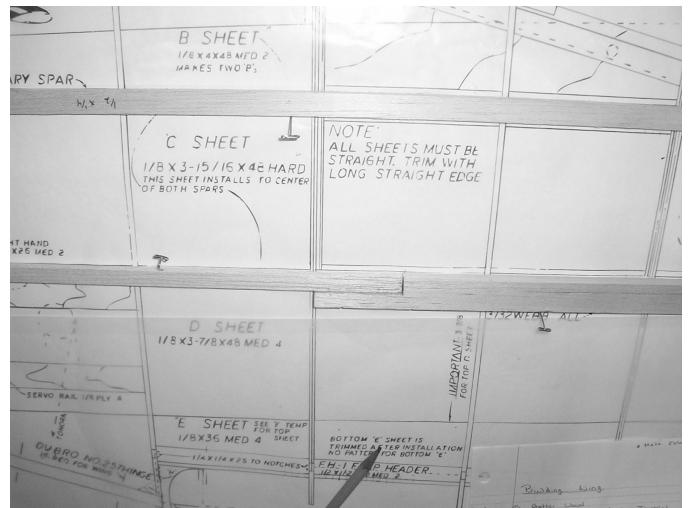 B SHEET
1/8 X 4 X 48 MED 2
MAKES TWO 'B's
ARY SPAR
1/2 X 1/4
'C SHEET
1/8 X 3-15/16 X 48 HARD
THIS SHEET INSTALLS TO CENTER
OF BOTH SPARS
NOTE
ALL SHEETS MUST BE
STRAIGHT. TRIM WITH
LONG STRAIGHT EDGE
HT HAND
X26 MED 2
D SHEET
1/8 X 3-7/8 X 48 MED 4
3/32 WEB ALL
IMPORTANT
FOR TOP D SHEET
SERVO RAIL 1/8 PLY
'E SHEET SEE 'E' TEMP
FOR TOP
SHEET
1/8 X 36 MED 4
BOTTOM 'E' SHEET IS
TRIMMED AFTER INSTALLATION
NO PATTERN FOR BOTTOM 'E'
1/4 X 1/4 X 25 TO NOTCHES
DUBRO NO. 257 HINGE
FH-1 FLAP HEADER
MED 2
Building Wing